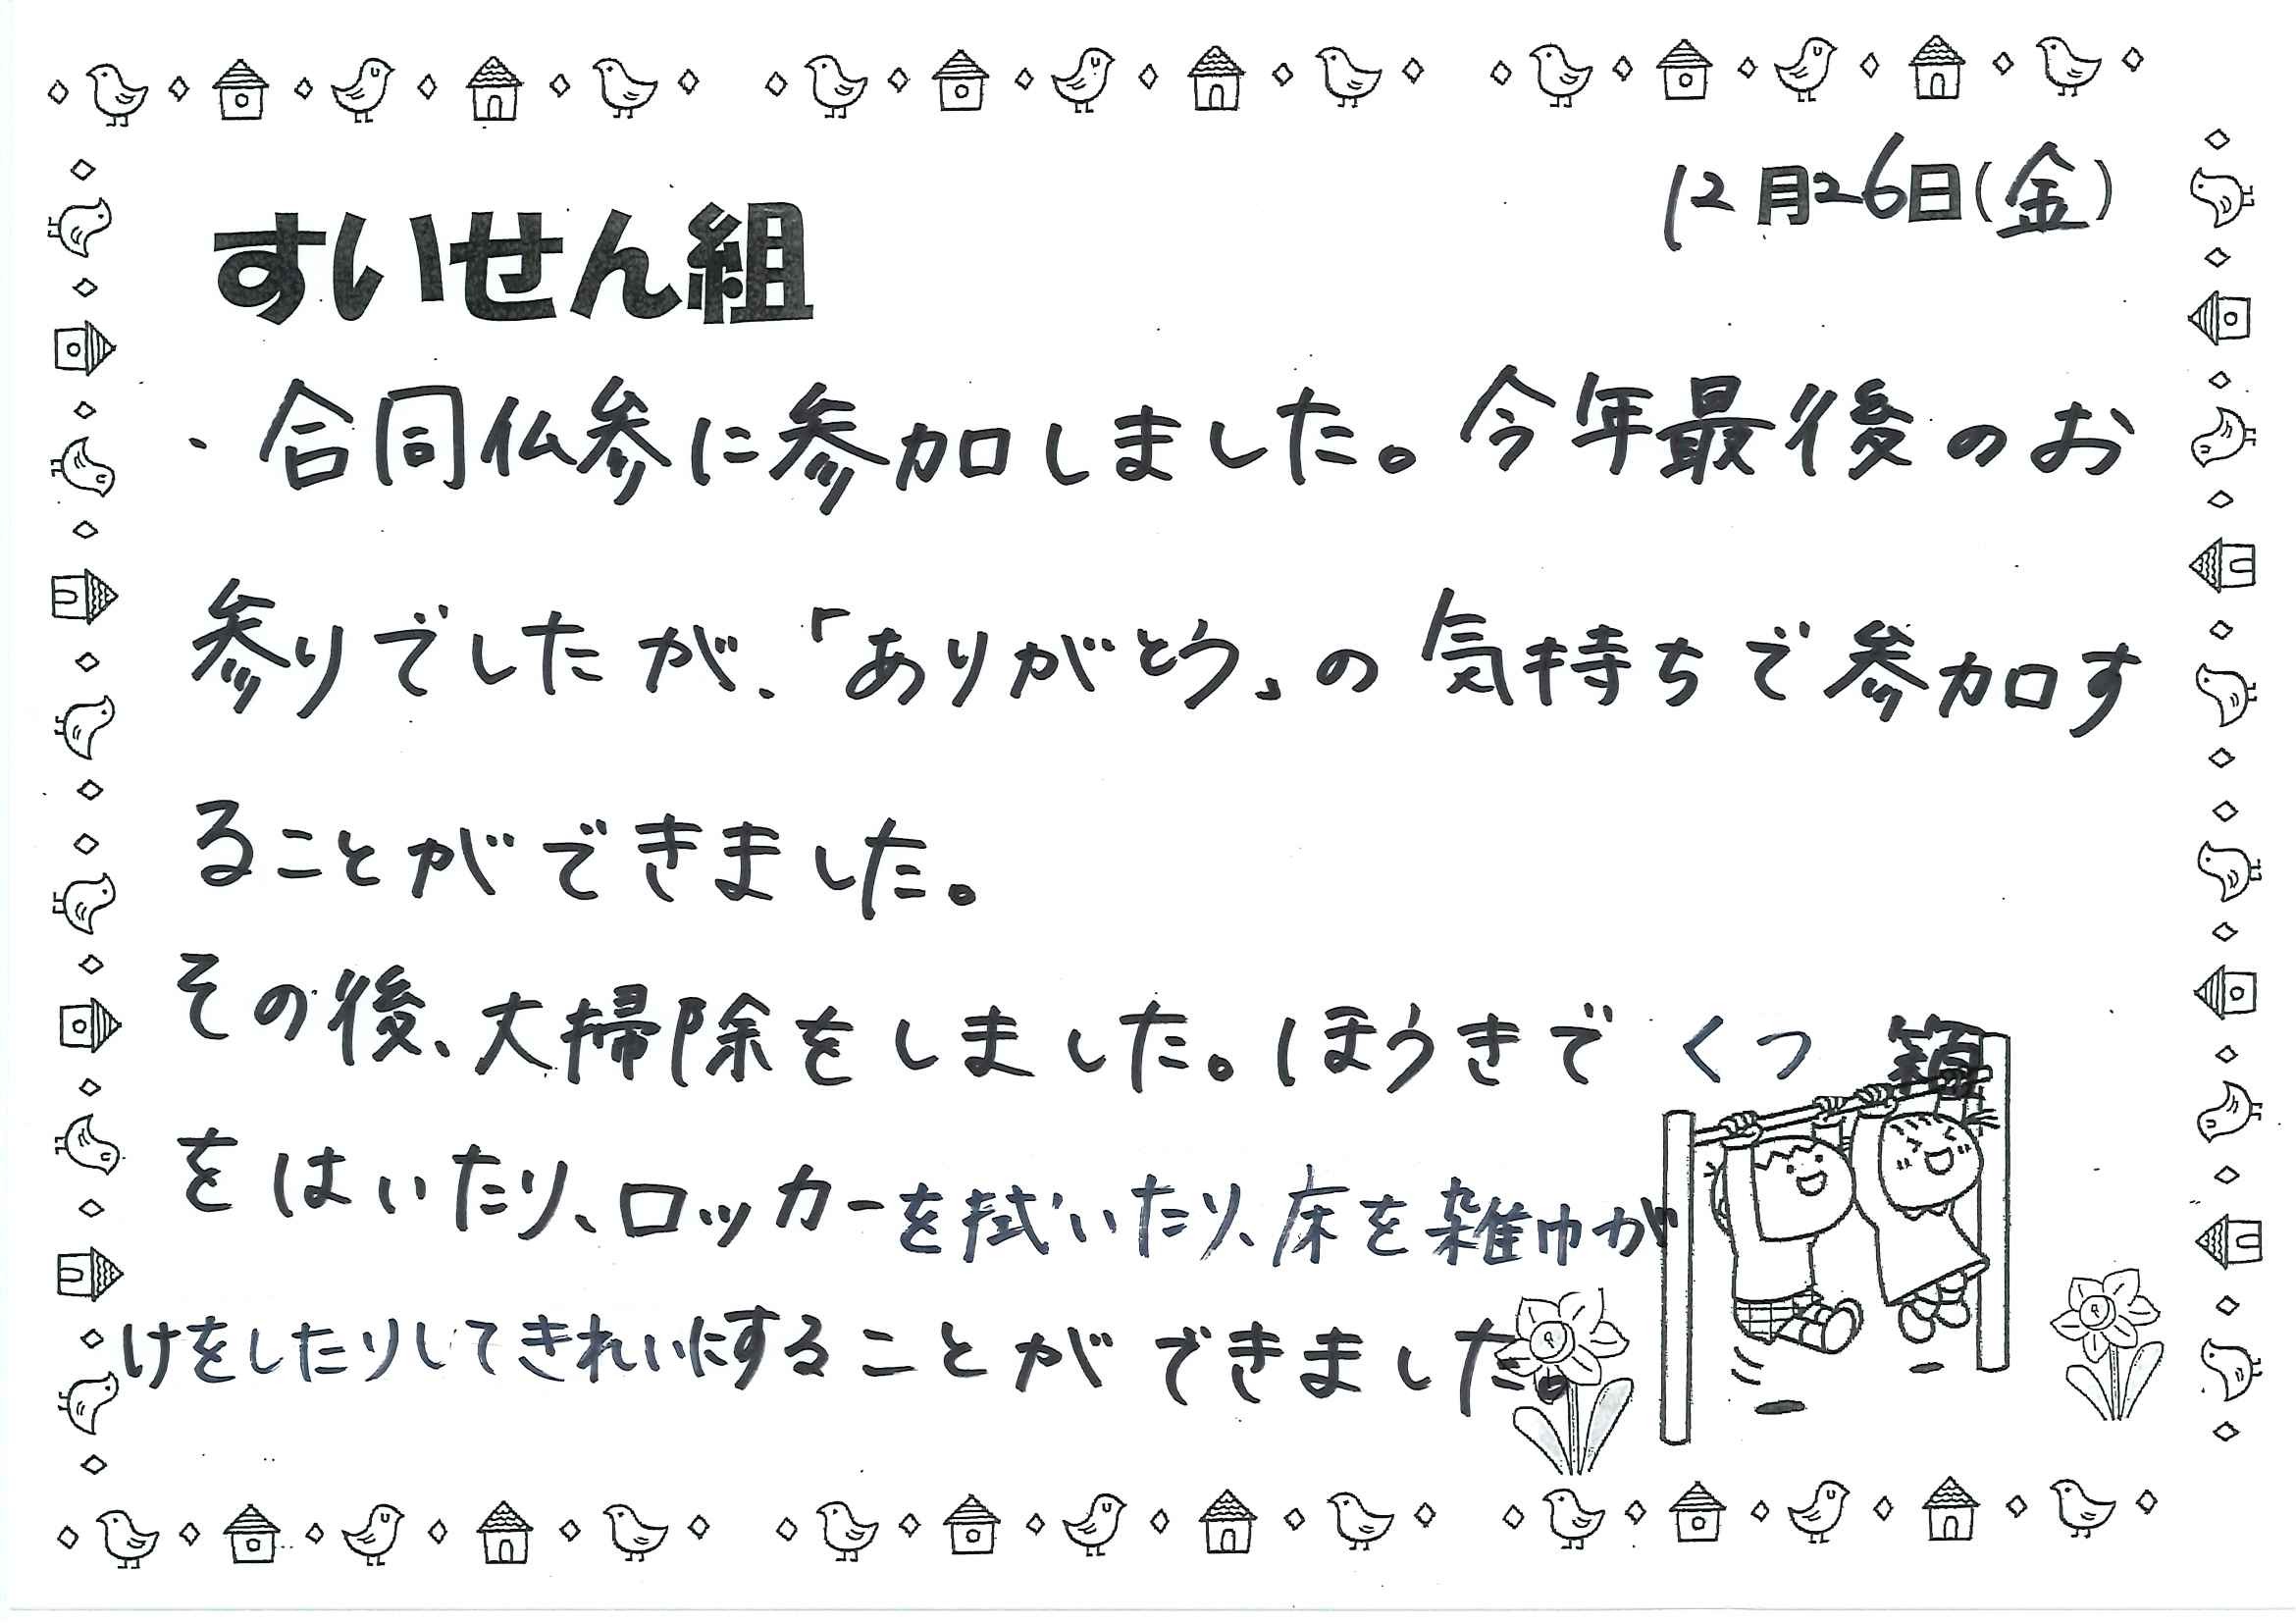 12月26日(金)
すいせん組
・合同仏参に参加しました。今年最後のお
参りでしたが、「ありがとう」の気持ちで参加す
ることができました。
その後、大掃除をしました。ほうきでくつ箱
をはいたり、ロッカーを拭いたり、床を雑巾が
けをしたりしてきれいにすることができました。